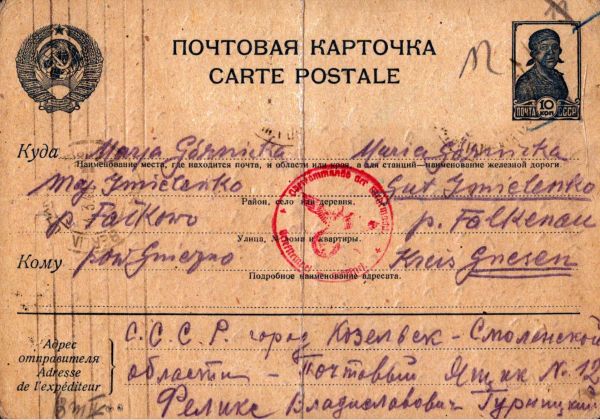 ПОЧТОВАЯ КАРТОЧКА
CARTE POSTALE
ПОЧТА 10 КОП. СССР
Куда Marja Górnicka Maria Górnicka
Наименование места, где находится почта, и области или края, а для станций—наименование железной дороги
Maj Imielenko Gut Imielenko
Район, село или деревня.
p. Fałkowo p. Falkenau
Улица, № дома и квартиры.
Кому pow Gniezno Kreis Gnesen
Подробное наименование адресата.
Oberkommando der Wehrmacht
BERLIN
Адрес отправителя
Adresse de l'expéditeur
С.С.С.Р. город Козельск - Смоленской
области - Почтовый Ящик No. 12
Феликс Владиславович